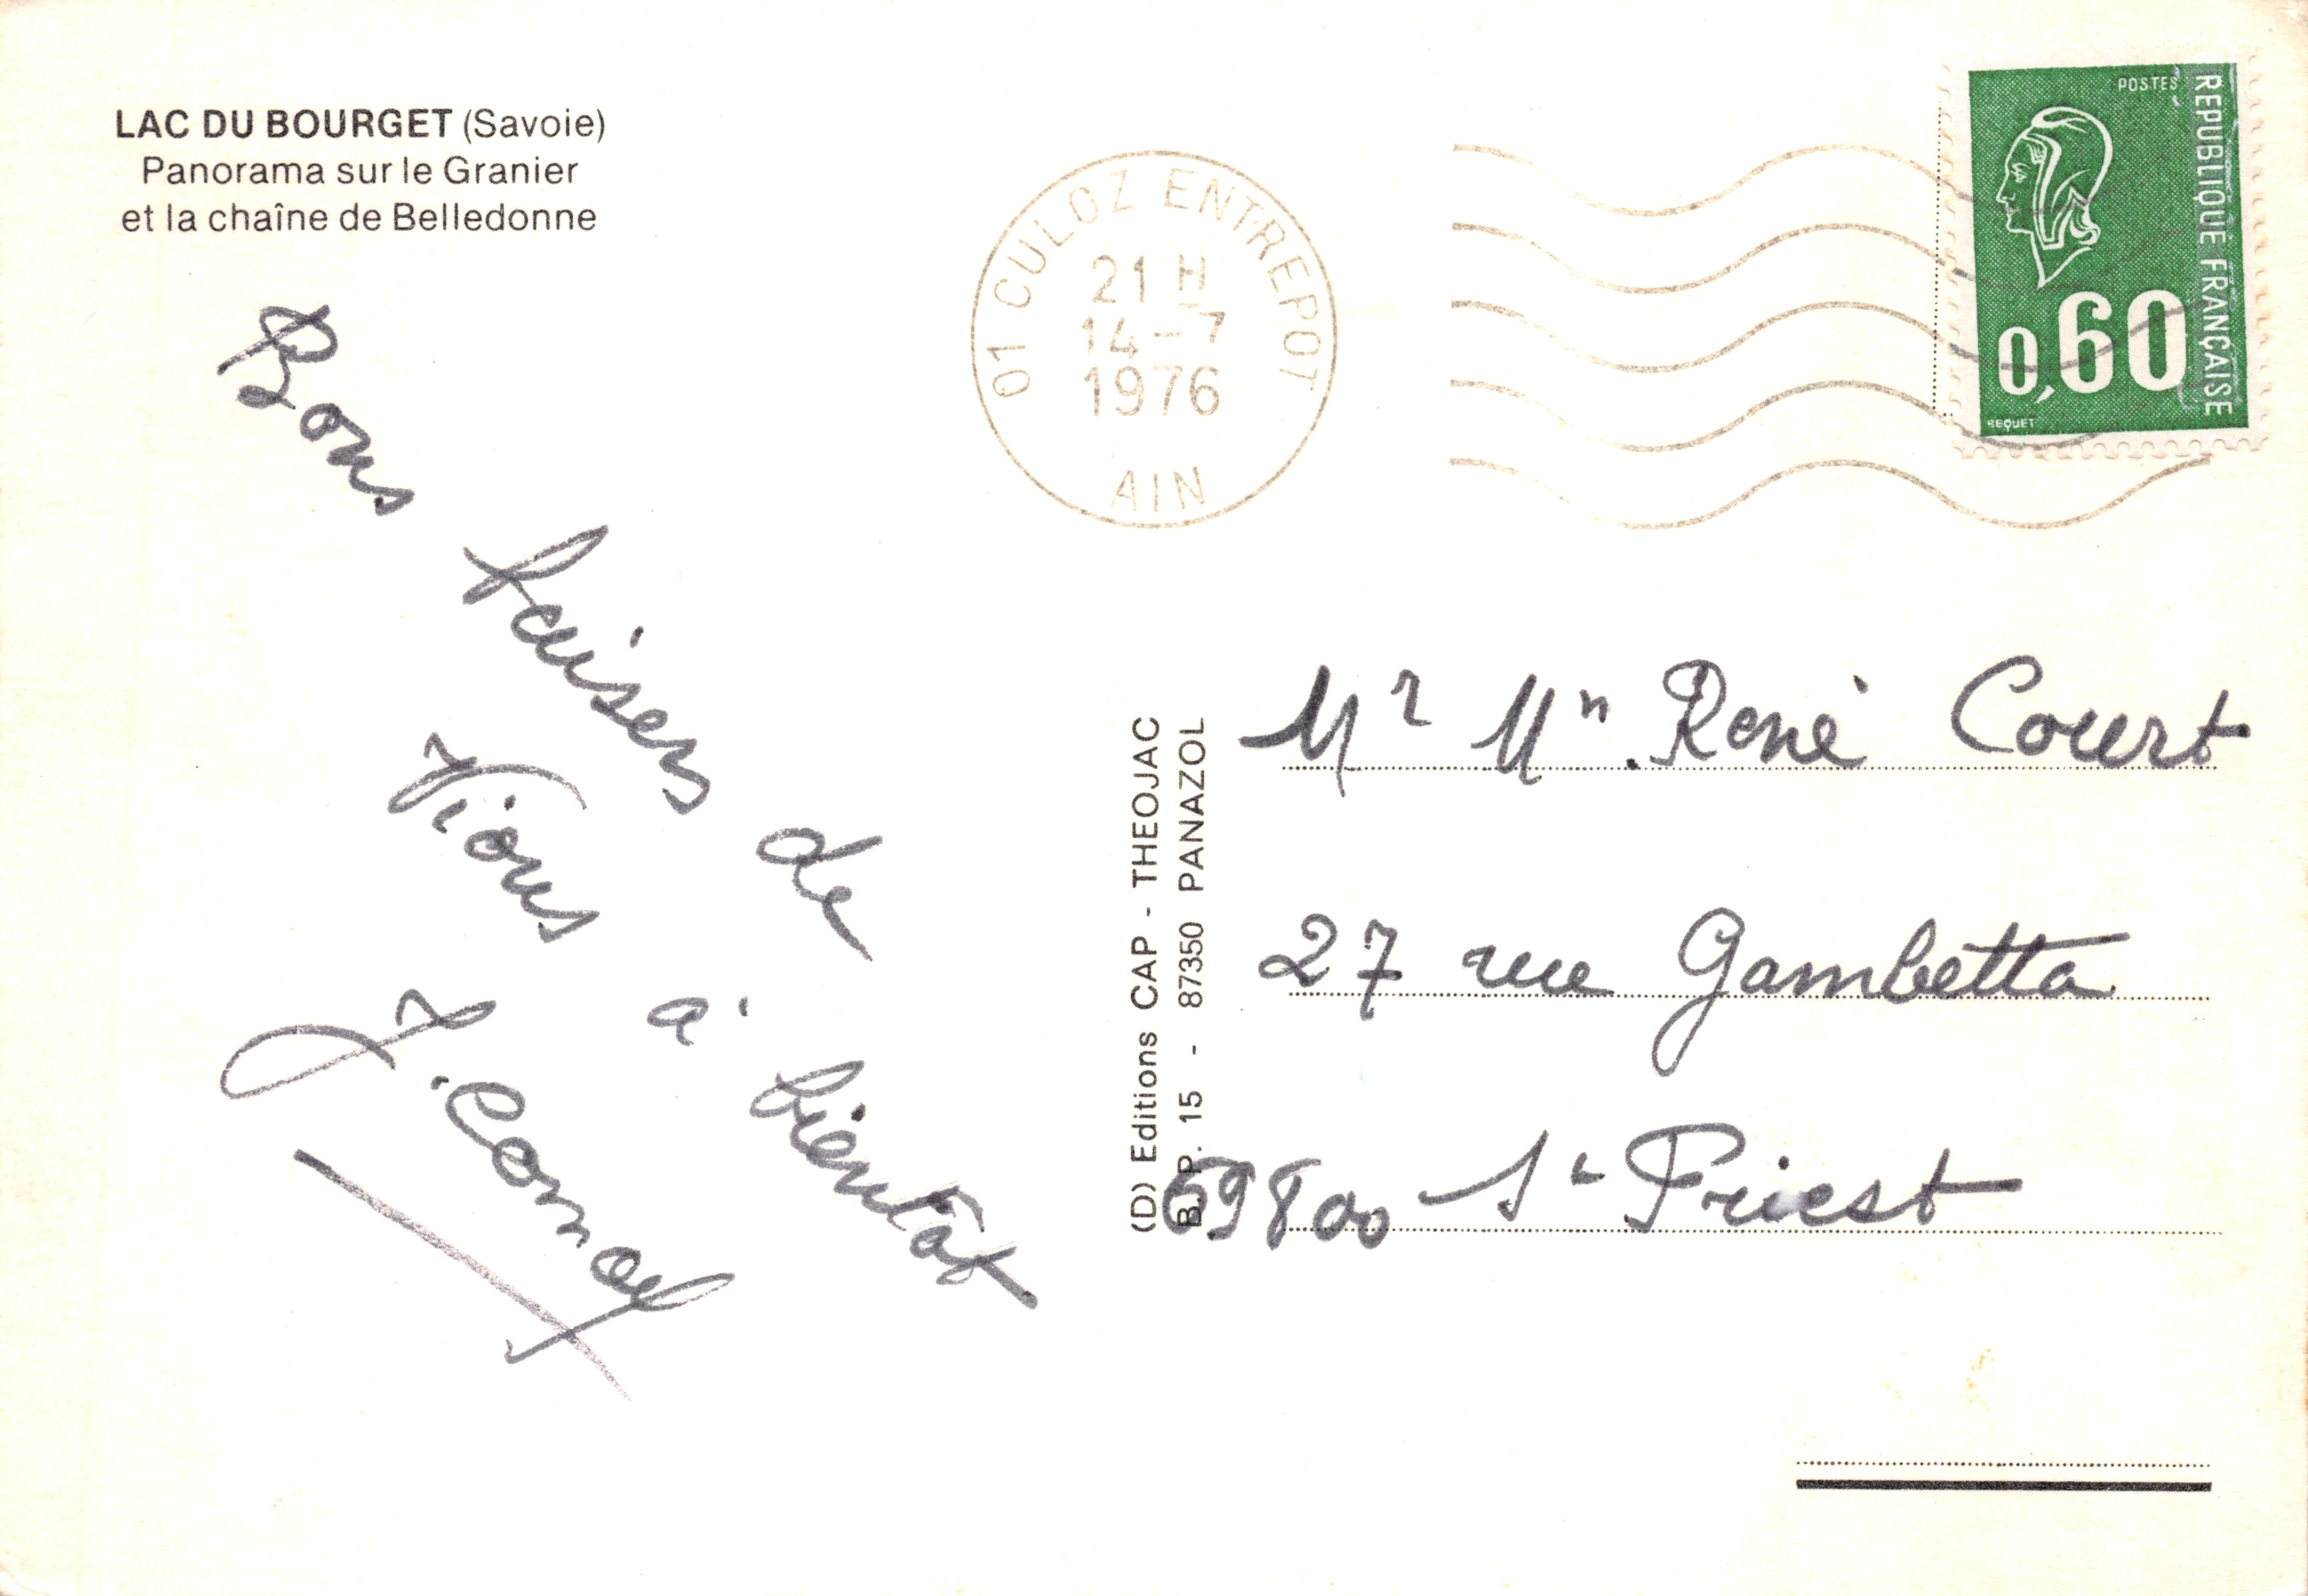 LAC DU BOURGET (Savoie)
Panorama sur le Granier
et la chaîne de Belledonne
01 CULOZ ENTREPOT
21 H
14-7
1976
AIN
POSTES
REPUBLIQUE FRANÇAISE
0,60
BEQUET
Bons baisers de
Vions à bientôt
J.
(D) Editions CAP - THEOJAC
B.P. 15 - 87350 PANAZOL
Mr Mn René Court
27 rue Gambetta
69800 St Priest